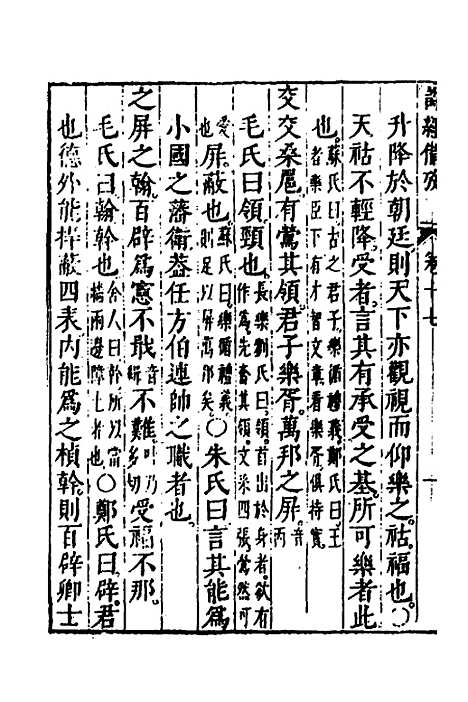 詩經備攷 卷十七
升降於朝廷則天下亦觀視而仰樂之祜福也〇
天祜不輕降受者言其有承受之基所可樂者此
也蘇氏曰古之君子樂循禮義鄭氏曰王者樂臣下有才智文章看樂胥俱持寔
交交桑扈有鶯其領君子樂胥萬邦之屏音丙
毛氏曰領頸也長樂劉氏曰領首出於身者欲有作為先奮其領文采四張鶯然可
愛也屏蔽也蘇氏曰樂循禮義則足以屏萬邦矣〇朱氏曰言其能為
小國之藩衛葢任方伯連帥之職者也
之屏之翰百辟為憲不戢音不難乃多切受福不那
毛氏曰翰幹也人曰幹所以當牆兩邊障土者也〇鄭氏曰辟君
也德外能捍蔽四表内能為之楨幹則百辟卿士